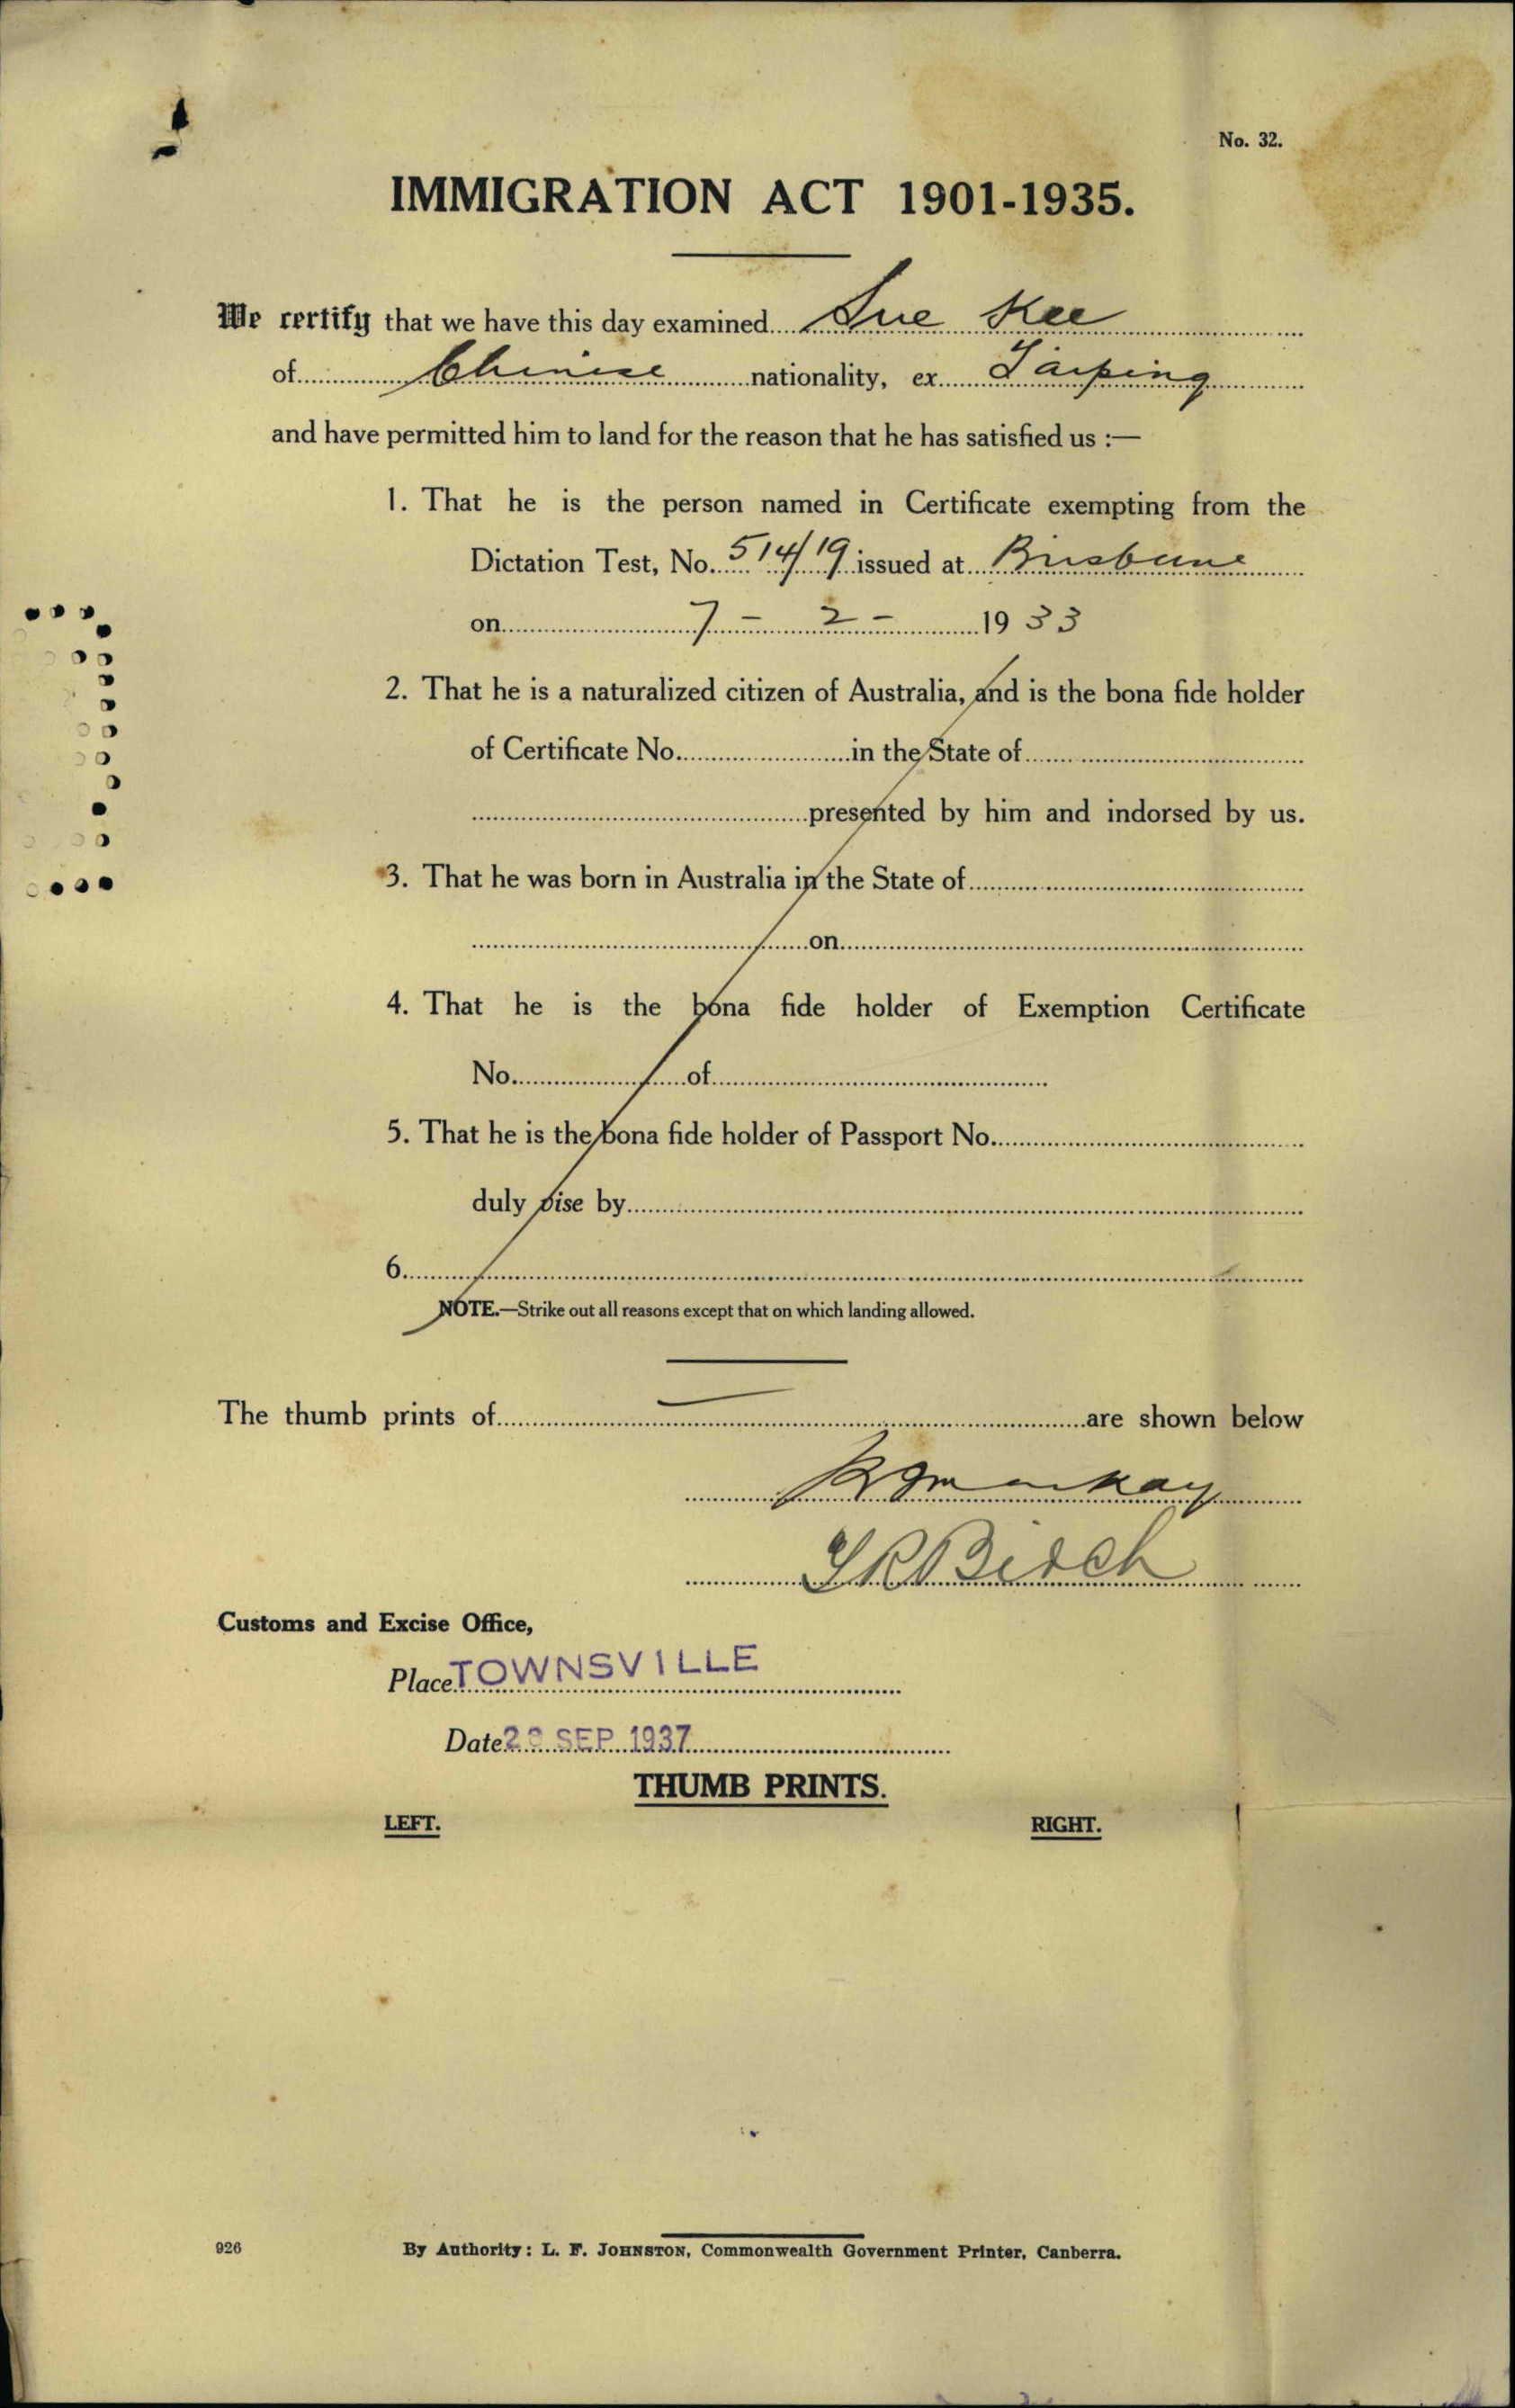 No. 32.
IMMIGRATION ACT 1901-1935.
We certify that we have this day examined Sue Kee
of Chinese nationality, ex Taiping
and have permitted him to land for the reason that he has satisfied us :—
1. That he is the person named in Certificate exempting from the
Dictation Test, No. 514/19 issued at Brisbane
on 7 - 2 - 1933
2. That he is a naturalized citizen of Australia, and is the bona fide holder
of Certificate No. in the State of
presented by him and indorsed by us.
3. That he was born in Australia in the State of
on
4. That he is the bona fide holder of Exemption Certificate
No. of
5. That he is the bona fide holder of Passport No.
duly vise by
6.
NOTE.—Strike out all reasons except that on which landing allowed.
The thumb prints of are shown below
Birch
Customs and Excise Office,
Place TOWNSVILLE
Date SEP 1937
THUMB PRINTS.
LEFT. RIGHT.
926 By Authority: L. F. JOHNSTON, Commonwealth Government Printer, Canberra.